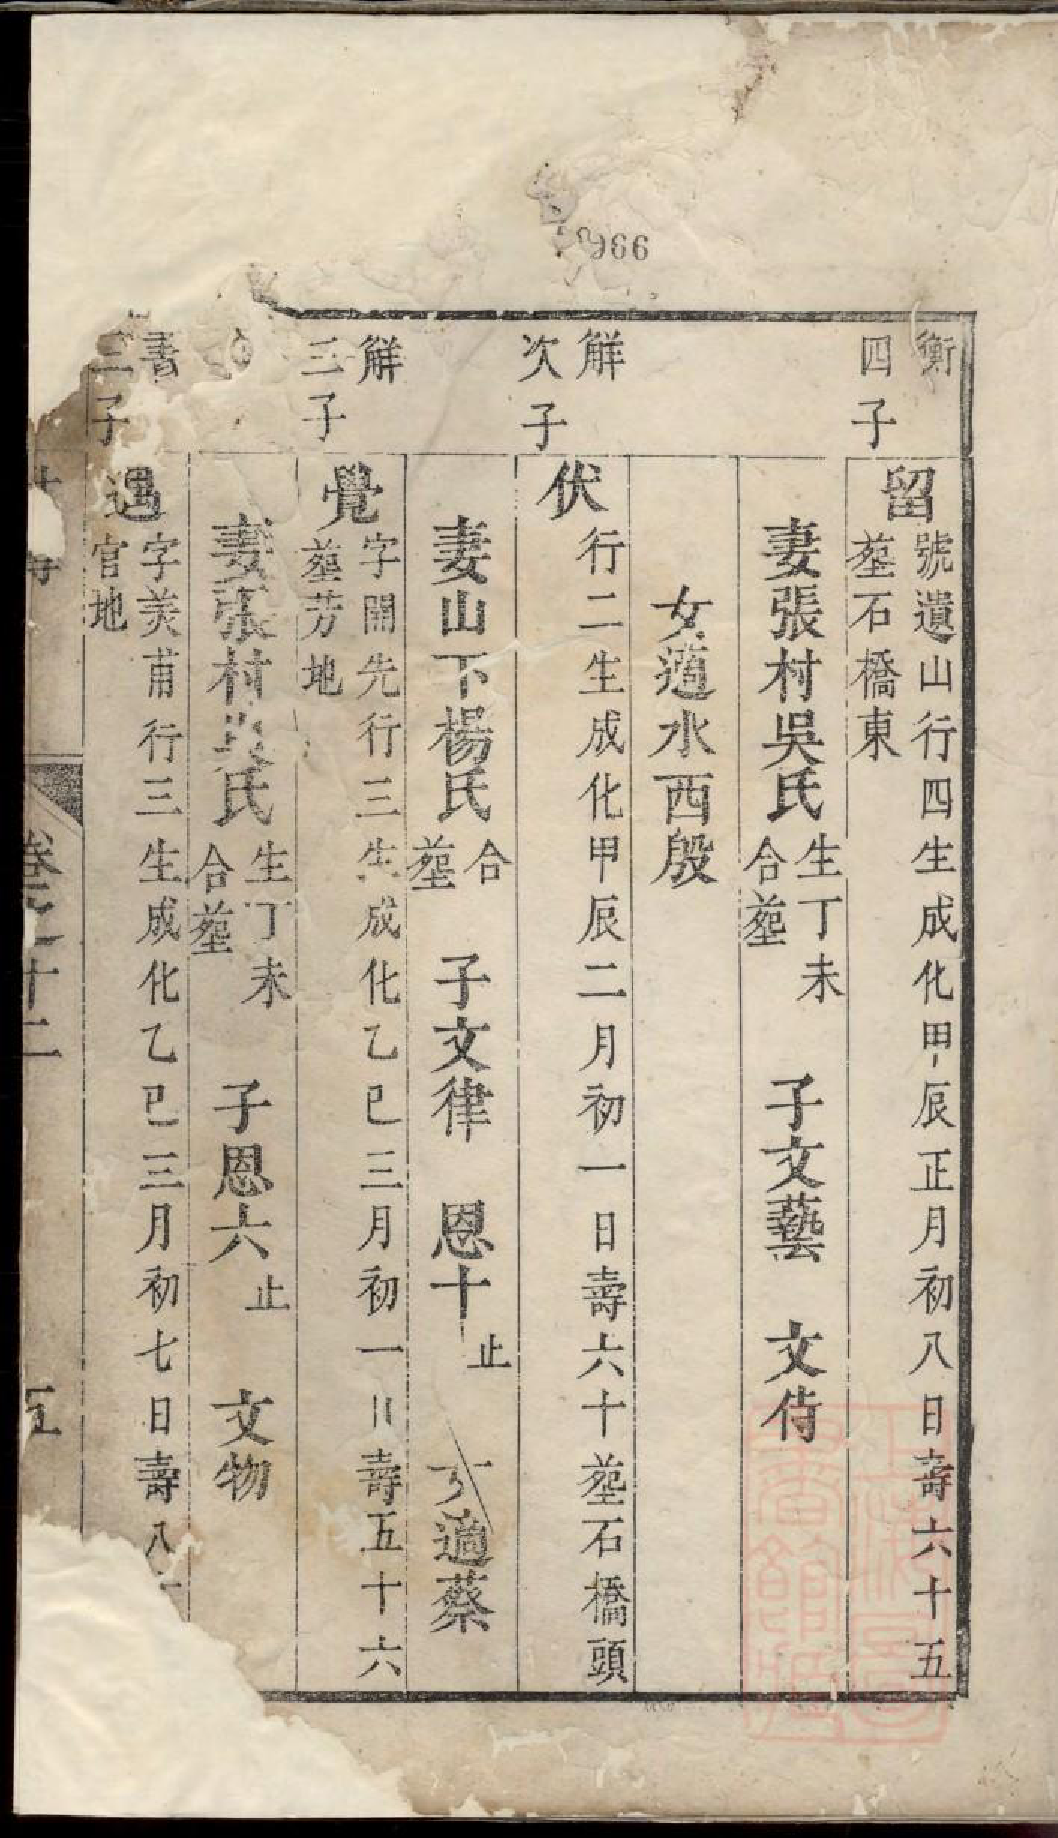 966
衡四子
留 號遺山行四生成化甲辰正月初八日壽六十五
塟石橋東
妻張村吳氏 生丁未合塟 子文藝 文侍
女適水西殷
觧次子
伏 行二生成化甲辰二月初一日壽六十塟石橋頭
妻山下楊氏 合塟 子文律 恩十止 女適蔡
觧三子
覺 字開先行三生成化乙巳三月初一日壽五十六
塟芳地
妻張村吳氏 生丁未合塟 子恩六止 文物
三子
遇 字美甫行三生成化乙巳三月初七日壽八
官地
卷之十二
五